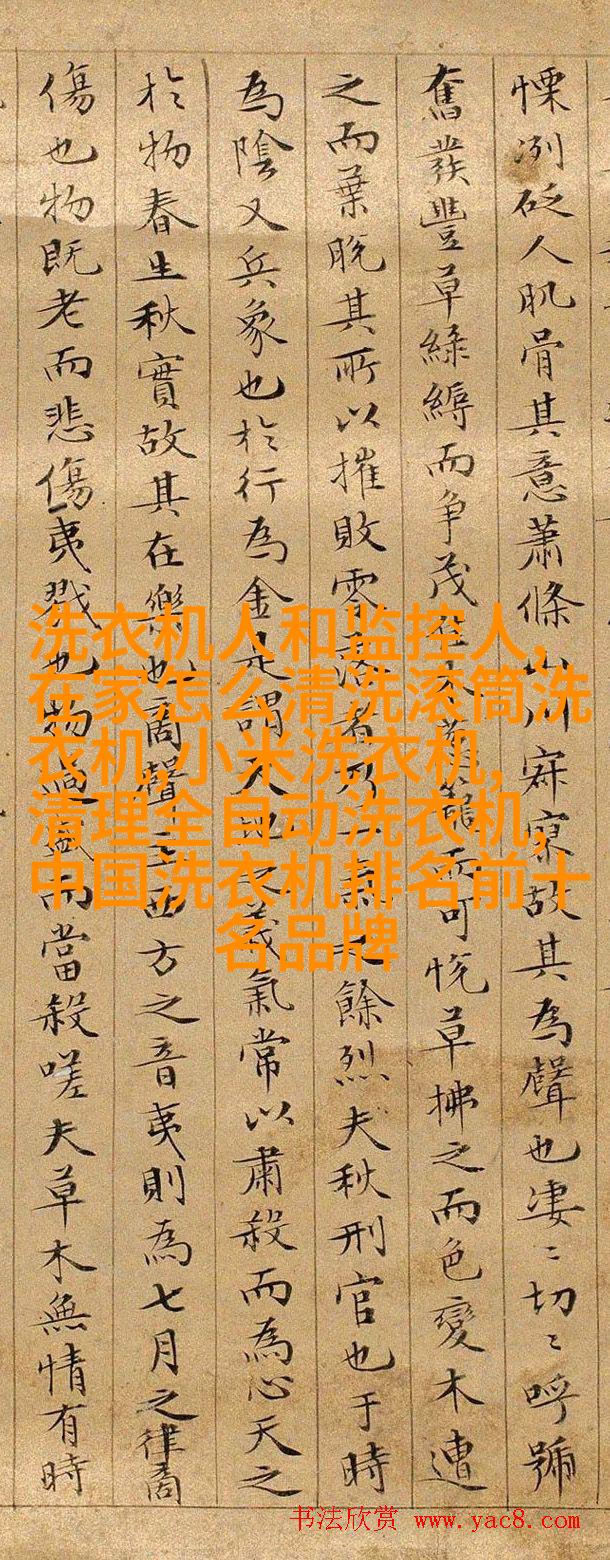 慄冽砭人肌骨其意蕭條山川寂寥故其為聲也淒〻切〻呼號
奮發豐草綠縟而争茂佳木蔥籠而可悅草拂之而色變木遭
之而葉脫其所以摧敗零落者乃一氣之餘烈夫秋刑官也于時
為陰又兵象也於行為金是謂天地之義氣常以肅殺而為心天之
於物春生秋實故其在樂也商聲主西方之音夷則為七月之律商
傷也物既老而悲傷夷戮也物過盛而當殺嗟夫草木無情有時
洗衣机人和监控人,
在家怎么清洗滚筒洗
衣机,小米洗衣机,
清理全自动洗衣机,
中国洗衣机排名前十
名品牌
书法欣赏 www.yac8.com